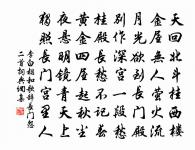 天回北斗挂西樓
金屋無人螢火流
月光欲到長門殿
別作深宮一段愁
桂殿長愁不記春
黃金四屋起秋塵
夜懸明鏡青天上
獨照長門宮裏人
李白相和歌辞長門怨
二首